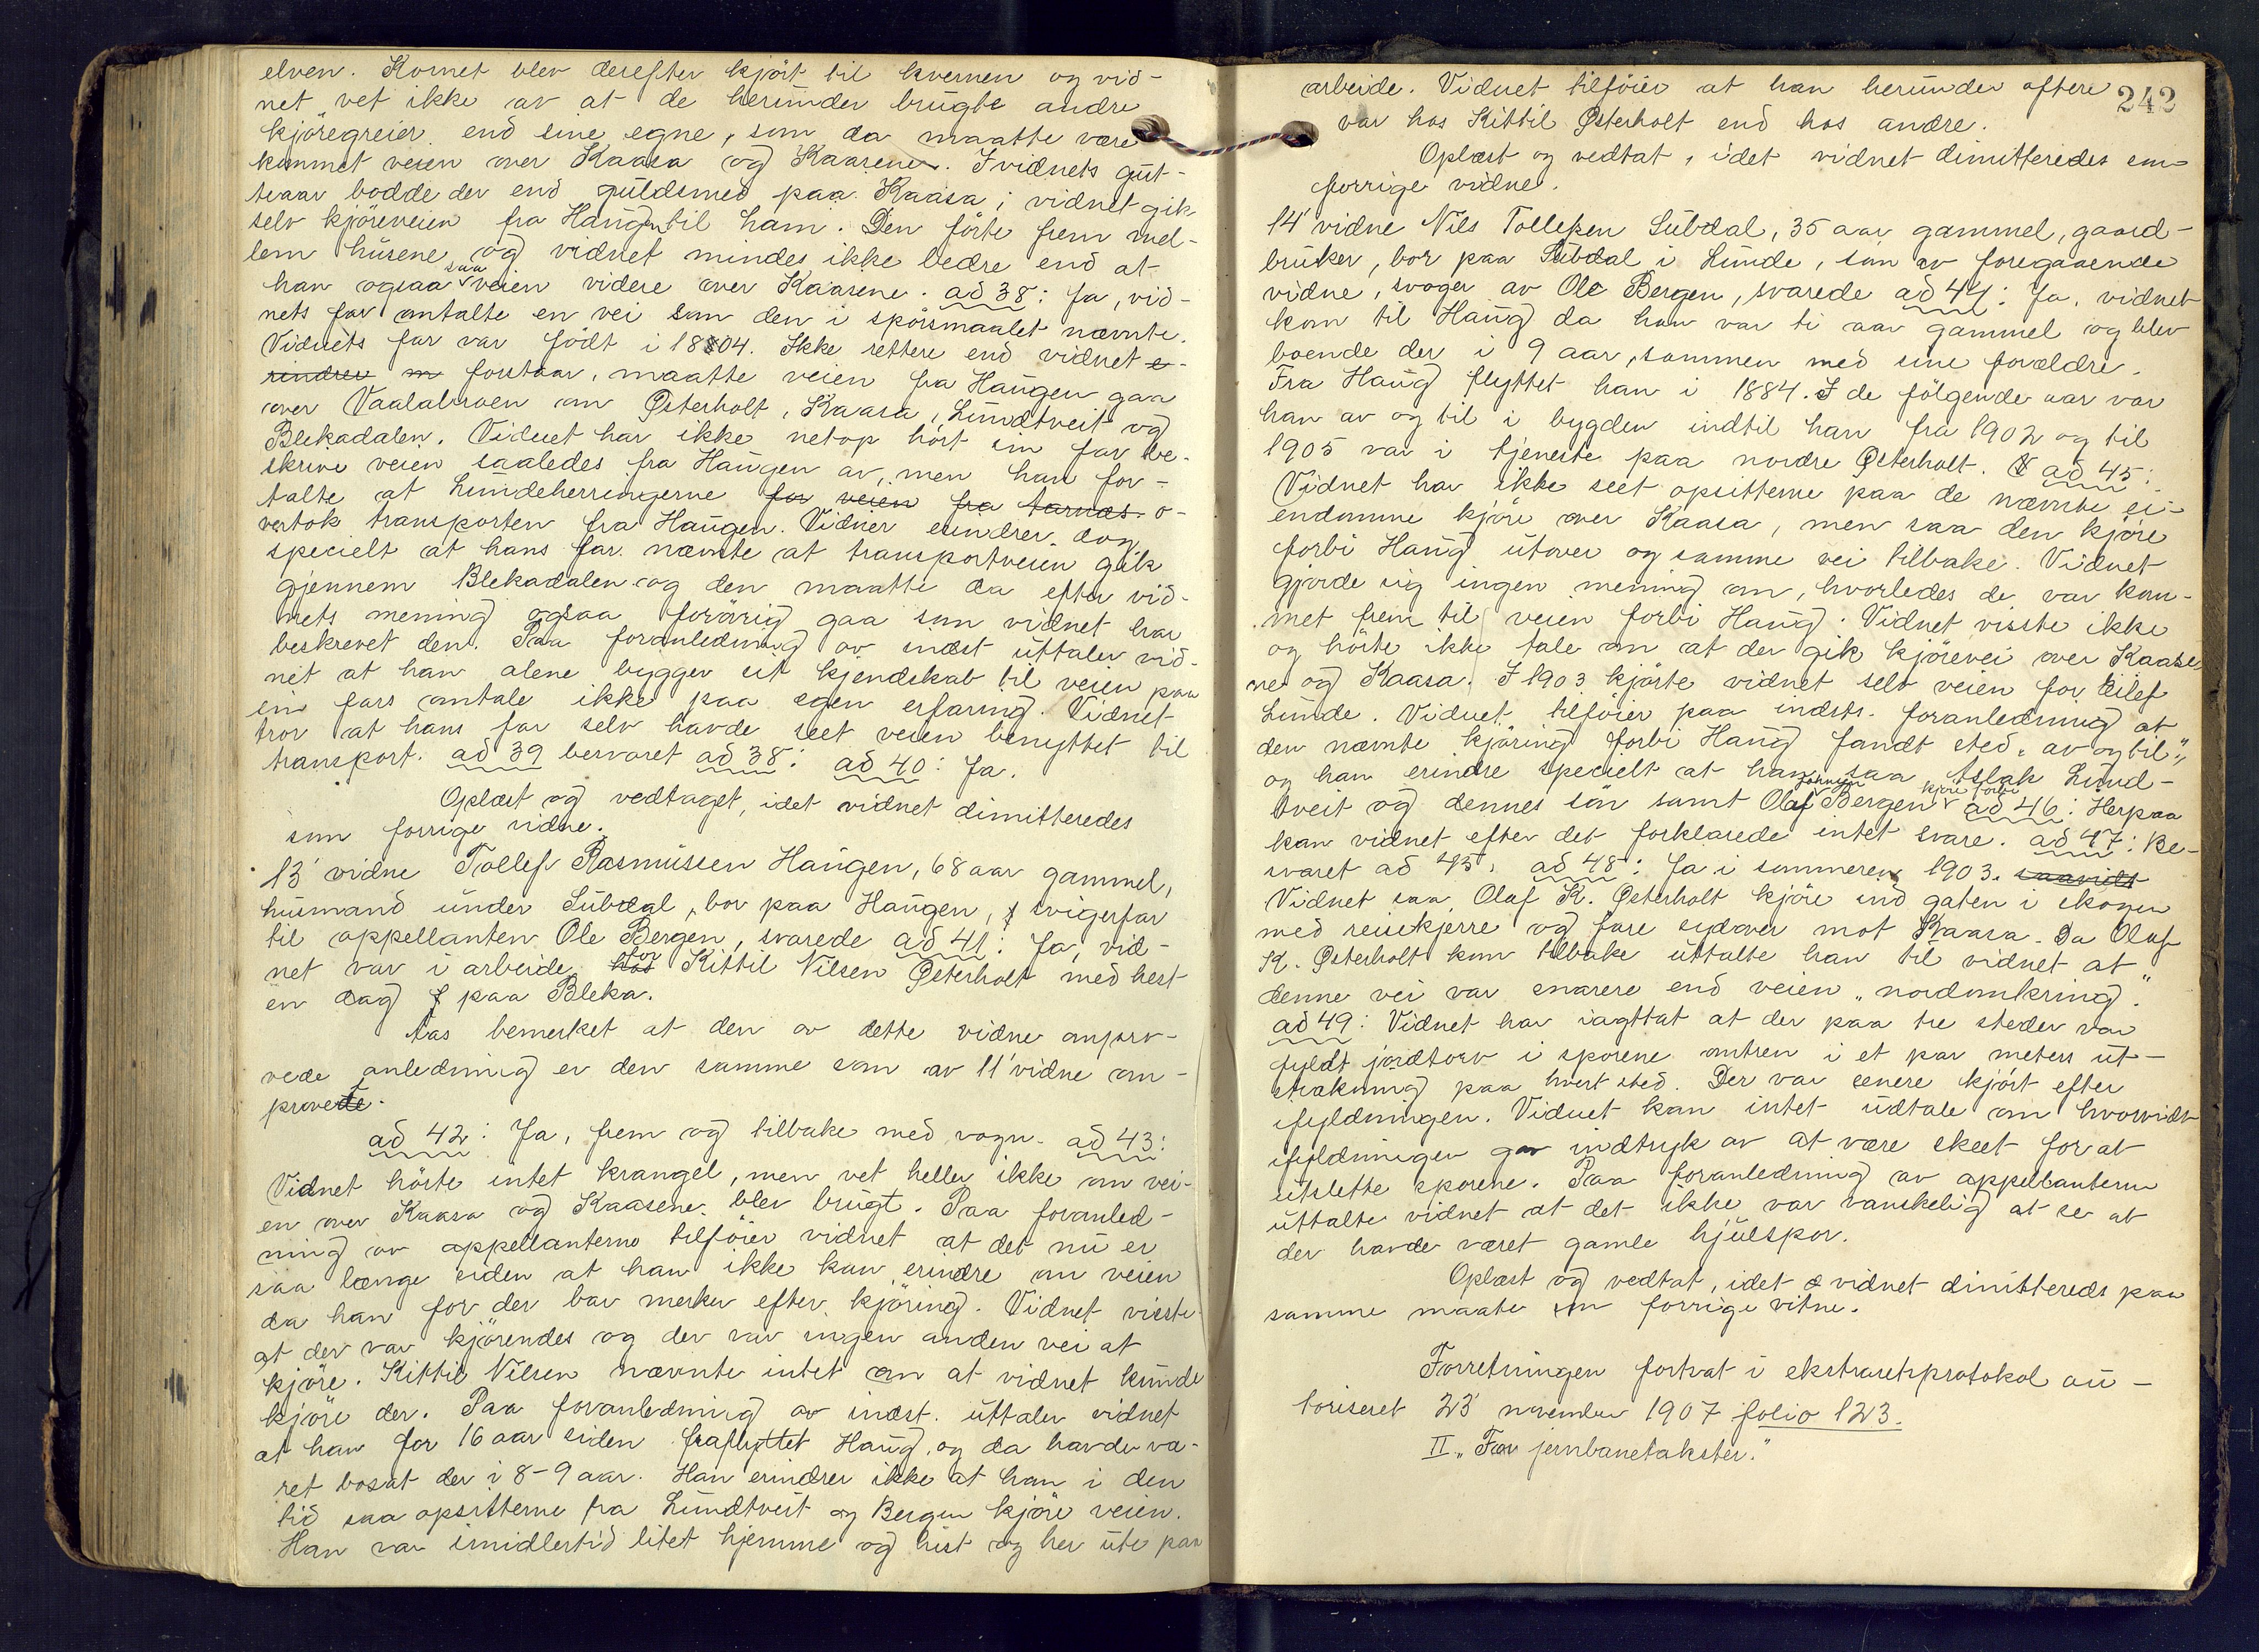 elven. Kornet blev derefter kjört til kvernen og vid-
net vet ikke av at de herunder brugte andre
kjöregreier end sine egne, som da maatte være
kommet veien over Kaasa og Kaasene. I vidnets gut-
teaar bodde der end guldsmed paa Kaasa; vidnet gik
selv kjöreveien fra Haugen til ham. Den förte frem mel-
lem husene og vidnet mindes ikke bedre end at
han ogsaa saa veien videre over Kaasene. ad 38: Ja, vid-
nets far omtalte en vei som den i spörsmaalet nævnte.
Vidnets far var födt i 1804. Ikke rettere end vidnet e-
rindrer m forstaar, maatte veien fra Haugen gaa
over Vaalabroen om Østerholt, Kaasa, Lundtveit og
Blekadalen. Vidnet har ikke netop hört sin far be-
skrive veien saaledes fra Haugen av, men han for-
talte at Lundeherringerne for veien fra tarnæs o-
vertok transporten fra Haugen. Vidner erindrer dog
specielt at hans far nævnte at transportveien gik
gjennem Blekadalen og den maatte da efter vid-
nets mening ogsaa forövrig gaa som vidnet har
beskrevet den. Paa foranledning av indst uttaler vid-
net at han alene bygger sit kjendskab til veien paa
sin fars omtale ikke paa egen erfaring. Vidnet
tror at hans far selv havde seet veien benyttet til
transport. ad 39 besvaret ad 38: ad 40: Ja.
Oplæst og vedtaget, idet vidnet dimitteredes
som forrige vidne.
13' vidne Tollef Rasmussen Haugen, 68 aar gammel,
husmand under Lübdal, bor paa Haugen, svigerfar
til appellanten Ole Bergen, svarede ad 41: Ja, vid-
net var i arbeide hos for Kittil Nilsen Østerholt med hest
en dag paa Bleka.
Aas bemerket at den av dette vidne anprø-
vede anledning er den samme som av 11' vidne om-
provede.
ad 42: Ja, frem og tilbake med vogn. ad 43:
Vidnet hörte intet krangel, men vet heller ikke om vei-
en over Kaasa og Kaasene blev brugt. Paa foranled-
ning av appellanterne tilföier vidnet at det nu er
saa længe siden at han ikke kan erindre om veien
da han for der bar merker efter kjöring. Vidnet visste
at der var kjörendes og der var ingen anden vei at
kjöre. Kittil Nilsen nævnte intet om at vidnet kunde
kjöre der. Paa foranledning av indst. uttaler vidnet
at han for 16 aar siden fraflyttet Haug, og da havde væ-
ret bosat der i 8-9 aar. Han erindrer ikke at han i den
tid saa opsitterne fra Lundtveit og Bergen kjöre veien.
Han var imidlertid litet hjemme og hist og her ute paa
242
arbeide. Vidnet tilföier at han herunder oftere
var hos Kittil Østerholt end hos andre.
Oplæst og vedtat, idet vidnet dimitteredes som
forrige vidne.
14' vidne Nils Tollefsen Lübdal, 35 aar gammel, gaard-
bruker, bor paa Lübdal i Lunde, sön av foregaaende
vidne, svoger av Ole Bergen, svarede ad 44: Ja, vidnet
kom til Haug da han var ti aar gammel og blev
boende der i 9 aar, sammen med sine forældre.
Fra Haug flyttet han i 1884. I de fölgende aar var
han av og til i bygden indtil han fra 1902 og til
1905 var i tjeneste paa nordre Østerholt. ad 45:
Vidnet har ikke seet opsitterne paa de nævnte ei-
endomme kjöre over Kaasa, men saa den kjöre
forbi Haug utover og samme vei tilbake. Vidnet
gjorde sig ingen mening om, hvorledes de var kom-
met frem til veien forbi Haug. Vidnet visste ikke
og hörte ikke tale om at der gik kjörevei over Kaase
ne og Kaasa. I 1903 kjörte vidnet selv veien for Eilef
Lunde. Vidnet tilföier paa indsts. foranledning at
den nævnte kjöring forbi Haug fandt sted „av og til"
og han erindre specielt at han saa Aslak Lund-
tveit og dennes sön samt Olaf Johnsen Bergen kjöre forbi ad 46: Herpaa
kan vidnet efter det forklarede intet svare. ad 47: Be-
svaret ad 45. ad 48: Ja i sommeren 1903. saavidt
Vidnet saa Olaf K. Østerholt kjöre ind gaten i skogen
med reisekjerre og fare sydover mot Kaasa. Da Olaf
K. Østerholt kom tilbake uttalte han til vidnet at
denne vei var snarere end veien „nordomkring".
ad 49: Vidnet har iagttat at der paa tre steder var
fyldt jordtorv i sporene omtren i et par meters ut-
strækning paa hvert sted. Der var senere kjört efter
ifyldningen. Vidnet kan intet udtale om hvorvidt
ifyldningen gav indtryk av at være skeet for at
utslette sporene. Paa foranledning av appellanterne
uttalte vidnet at det ikke var vanskelig at se at
der havde været gamle hjulspor.
Oplæst og vedtat, idet vidnet dimittereds paa
samme maate som forrige vitne.
Forretningen fortsat i ekstraretsprotokol au-
toriseret 23' november 1907 folio 123.
II „For jernbanetakster."